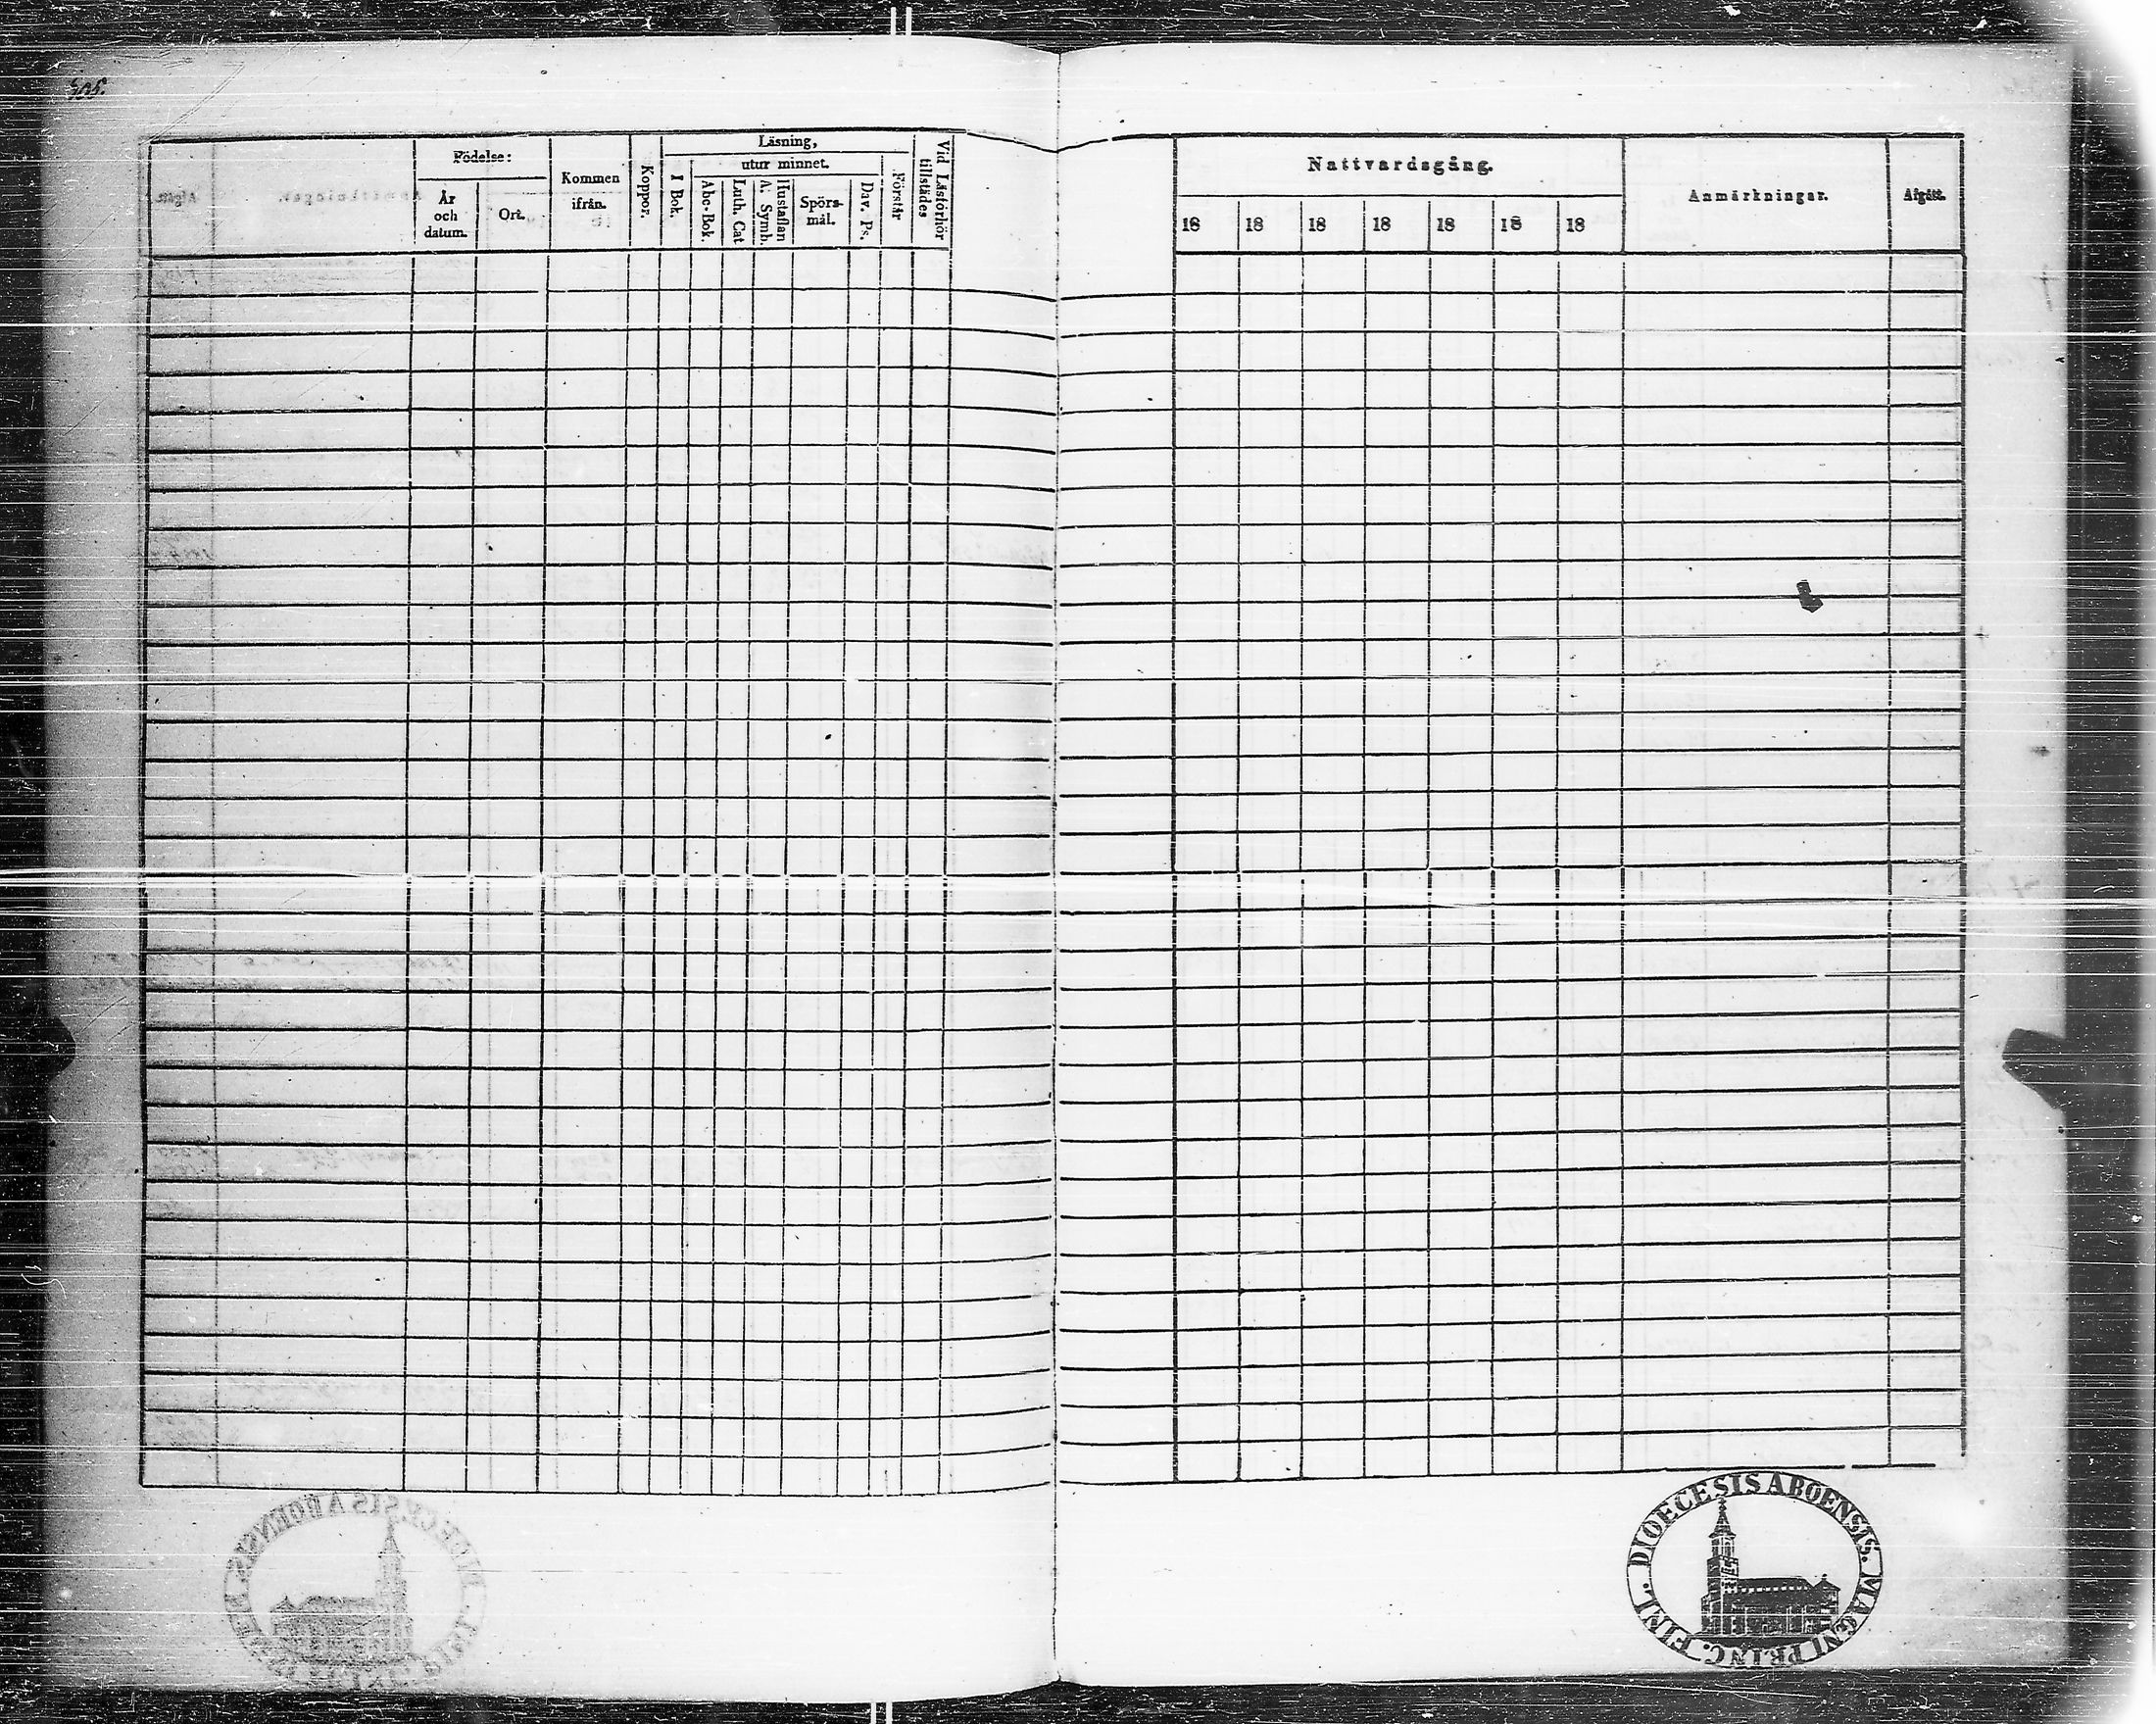 305.
Födelse:
År och datum.
Ort.
Kommen ifrån.
Koppor.
Läsning,
utur minnet.
I Bok.
Abc-Bok.
Luth. Cat
Hustaflan
A. Symb.
Spörs-
mål.
Dav. Ps.
Förstår
Vid Läsförhör
tillstädes
Nattvardsgång.
18 18 18 18 18 18 18
Anmärkningar.
Afgått.
DIOECESIS ABOENSIS. MAGNI PRINC. FINL.